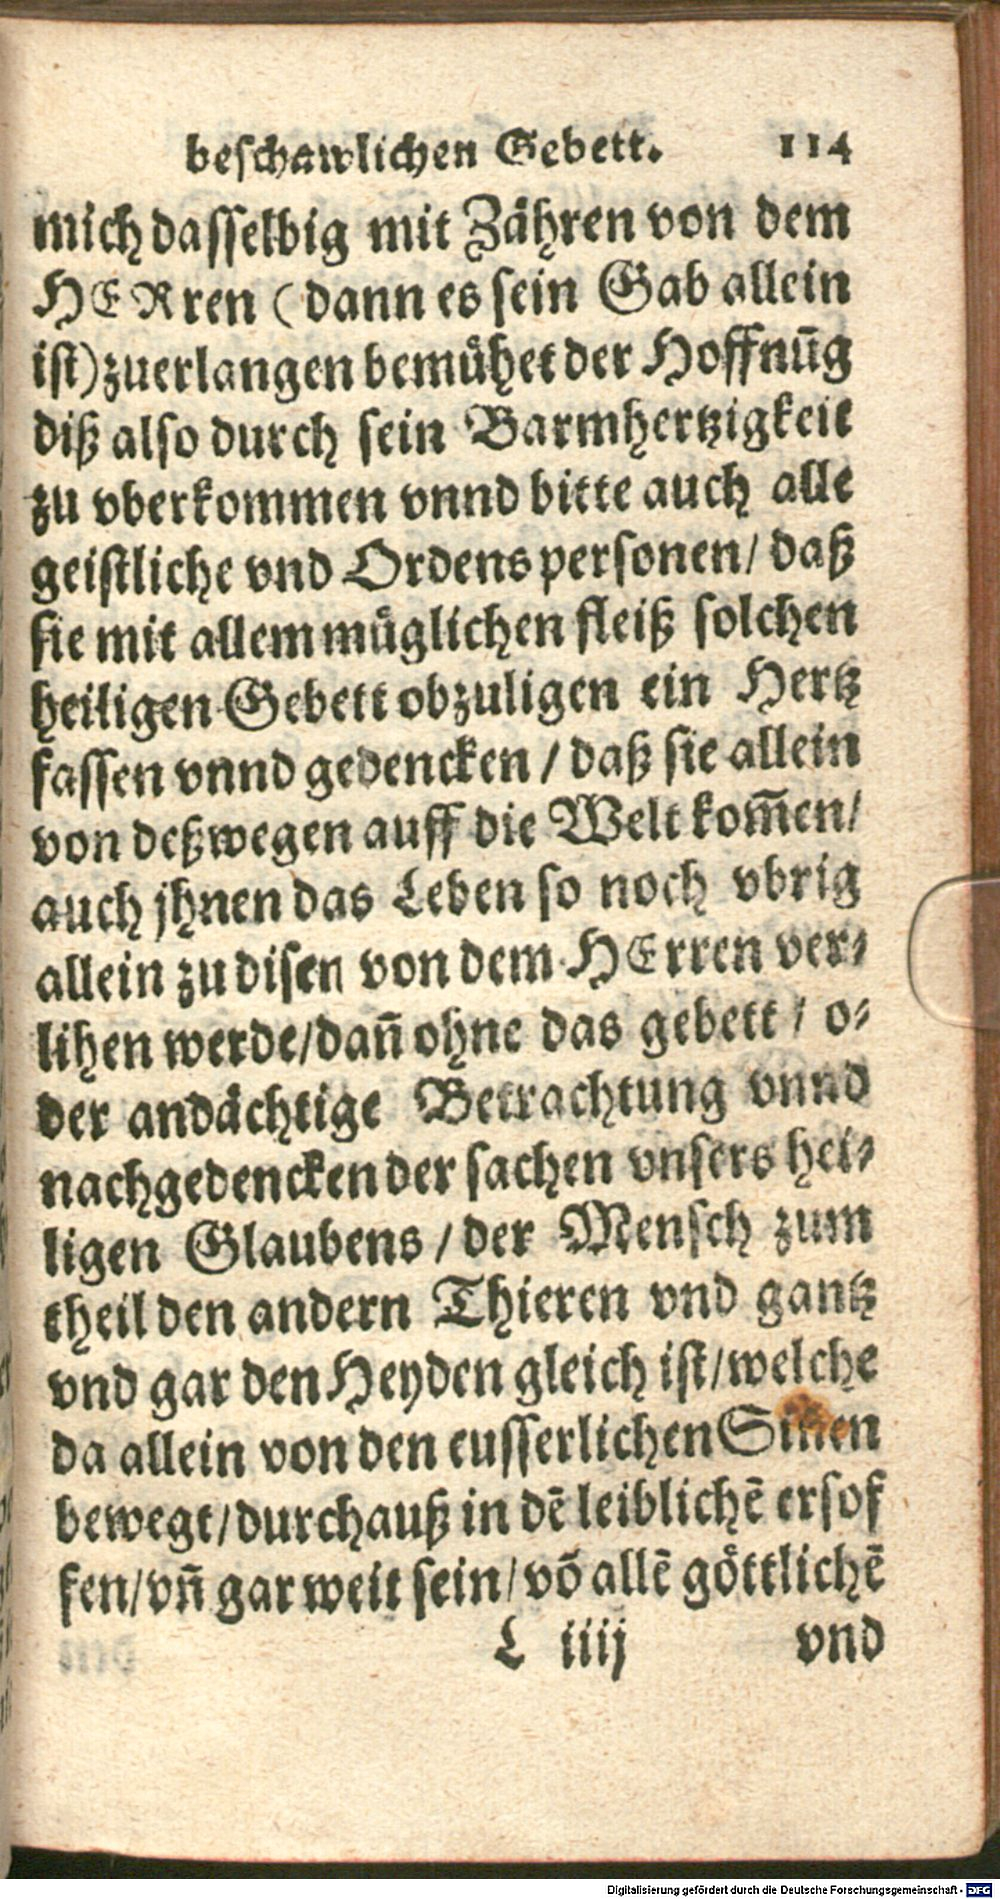 beschawlichen Gebett. 114
mich dasselbig mit Zähren von dem
HERren (dann es sein Gab allein
ist) zuerlangen bemühet der Hoffnũg
diß also durch sein Barmhertzigkeit
zu vberkommen vnnd bitte auch alle
geistliche vnd Ordens personen/ daß
sie mit allem müglichen fleiß solchen
heiligen Gebett obzuligen ein Hertz
fassen vnnd gedencken / daß sie allein
von deßwegen auff die Welt kom̃en/
auch jhnen das Leben so noch vbrig
allein zu disen von dem HErren ver⸗
lihen werde/dan̄ ohne das gebett / o⸗
der andächtige Betrachtung vnnd
nachgedencken der sachen vnsers hei⸗
ligen Glaubens / der Mensch zum
theil den andern Thieren vnd gantz
vnd gar den Heyden gleich ist/welche
da allein von den eusserlichen Sinen
bewegt/durchauß in dē leiblichē ersof
fen/vn̄ gar weit sein/vō allē göttlichē
L iiij vnd
Digitalisierung gefördert durch die Deutsche Forschungsgemeinschaft - DFG